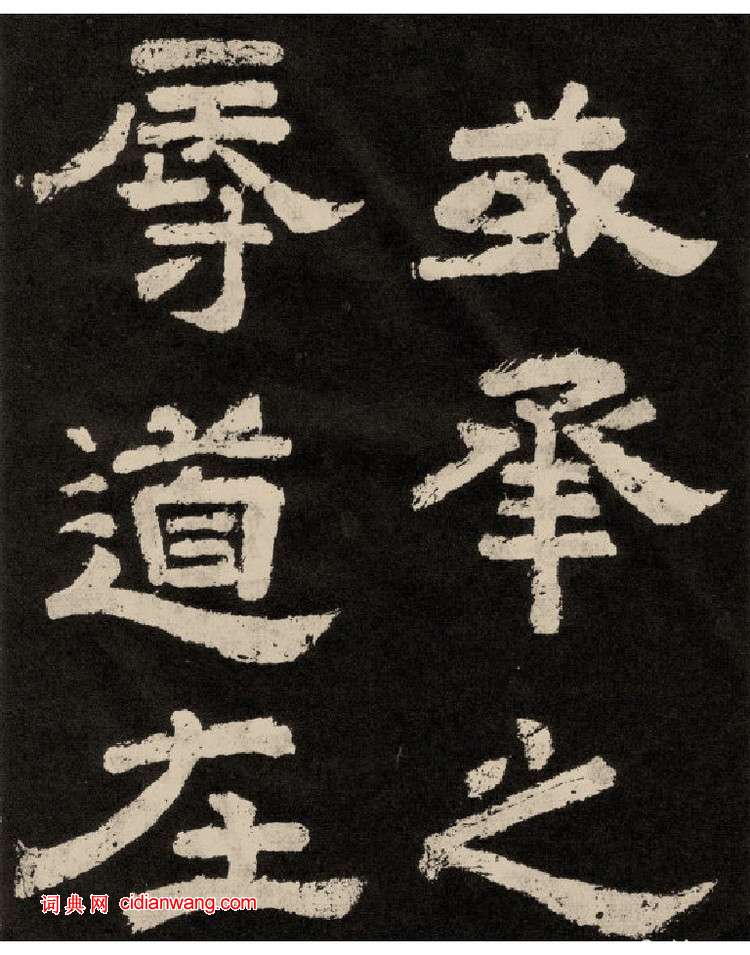 或承之
辱道在
词典网 cidianwang.com